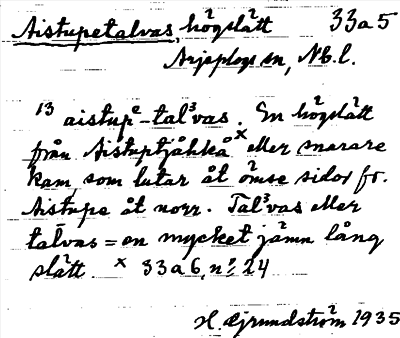 Aistupetalvas, högslätt 33a5
Arjeplogs sn, Nb.l.
13 aistupe-tal³vas. En högslätt
från Aistuptjåhkåˣ eller snarare
kam, som lutar åt ömse sidor fr.
Aistupe åt norr. Tal³vas eller
talvas = en mycket jämn lång
slätt. ˣ 33a6, nr. 24
H. Grundström 1935